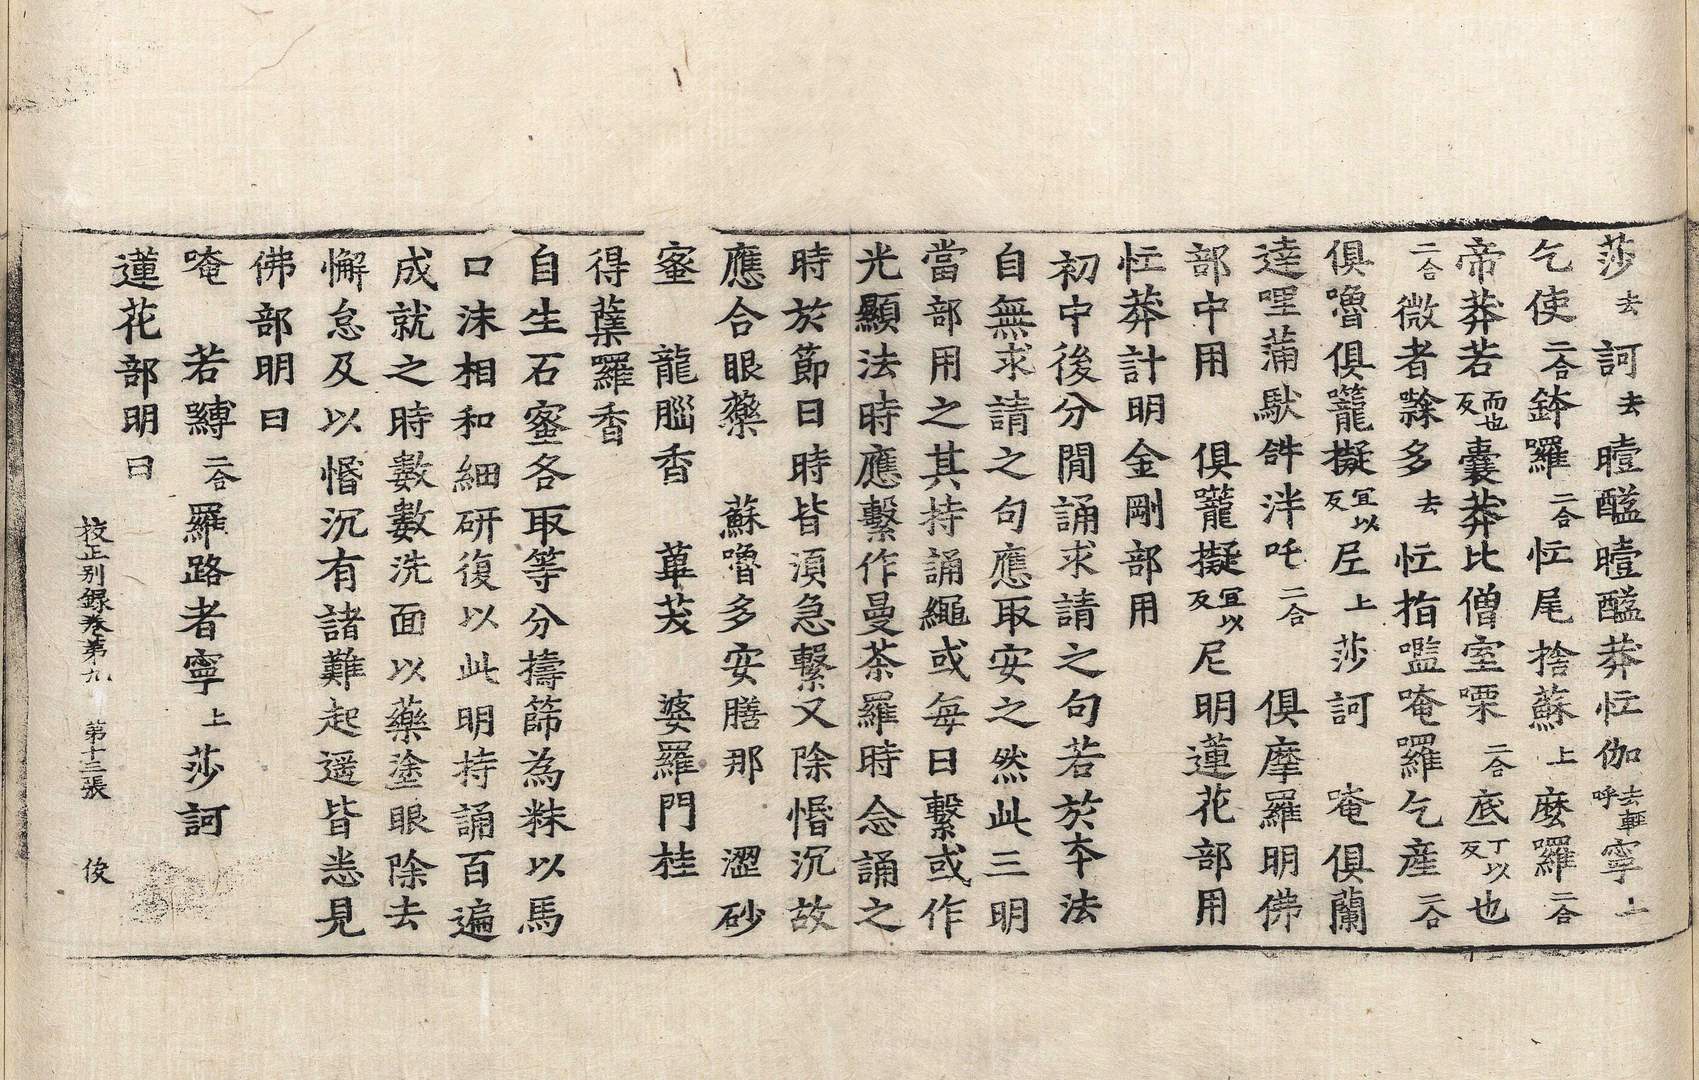 莎去訶去曀醯曀醯莽忹伽去輕呼寧上
乞使二合鉢囉二合忹尾捨蘇上麼囉二合
帝莽若而也反囊莽比僧室㗚二合底丁以反也
二合微者㘑多去忹指嚂唵囉乞産二合
俱嚕俱籠擬冝以反𡰱上莎訶　唵俱蘭
達哩蒲馱䤈泮吒二合　俱摩羅明佛
部中用　俱籠擬冝以反尼明蓮花部用
忹莽計明金剛部用
初中後分閒誦求請之句若於本法
自無求請之句應取安之然此三明
當部用之其持誦繩或每日繫或作
光顯法時應繫作曼荼羅時念誦之
時於節日時皆湏急繫又除惛沉故
應合眼藥　蘇嚕多安膳那　澀砂
蜜　龍腦香　蓽茇　婆羅門桂
得蘗羅香
自生石蜜各取等分擣篩為粖以馬
口沫相和細研復以此明持誦百遍
成就之時數數洗面以藥塗眼除去
懈怠及以惛沉有諸難起遥皆悉見
佛部明曰
唵　若縛二合羅路者寧上莎訶
蓮花部明曰
校正别録卷第九　第十三張　俊